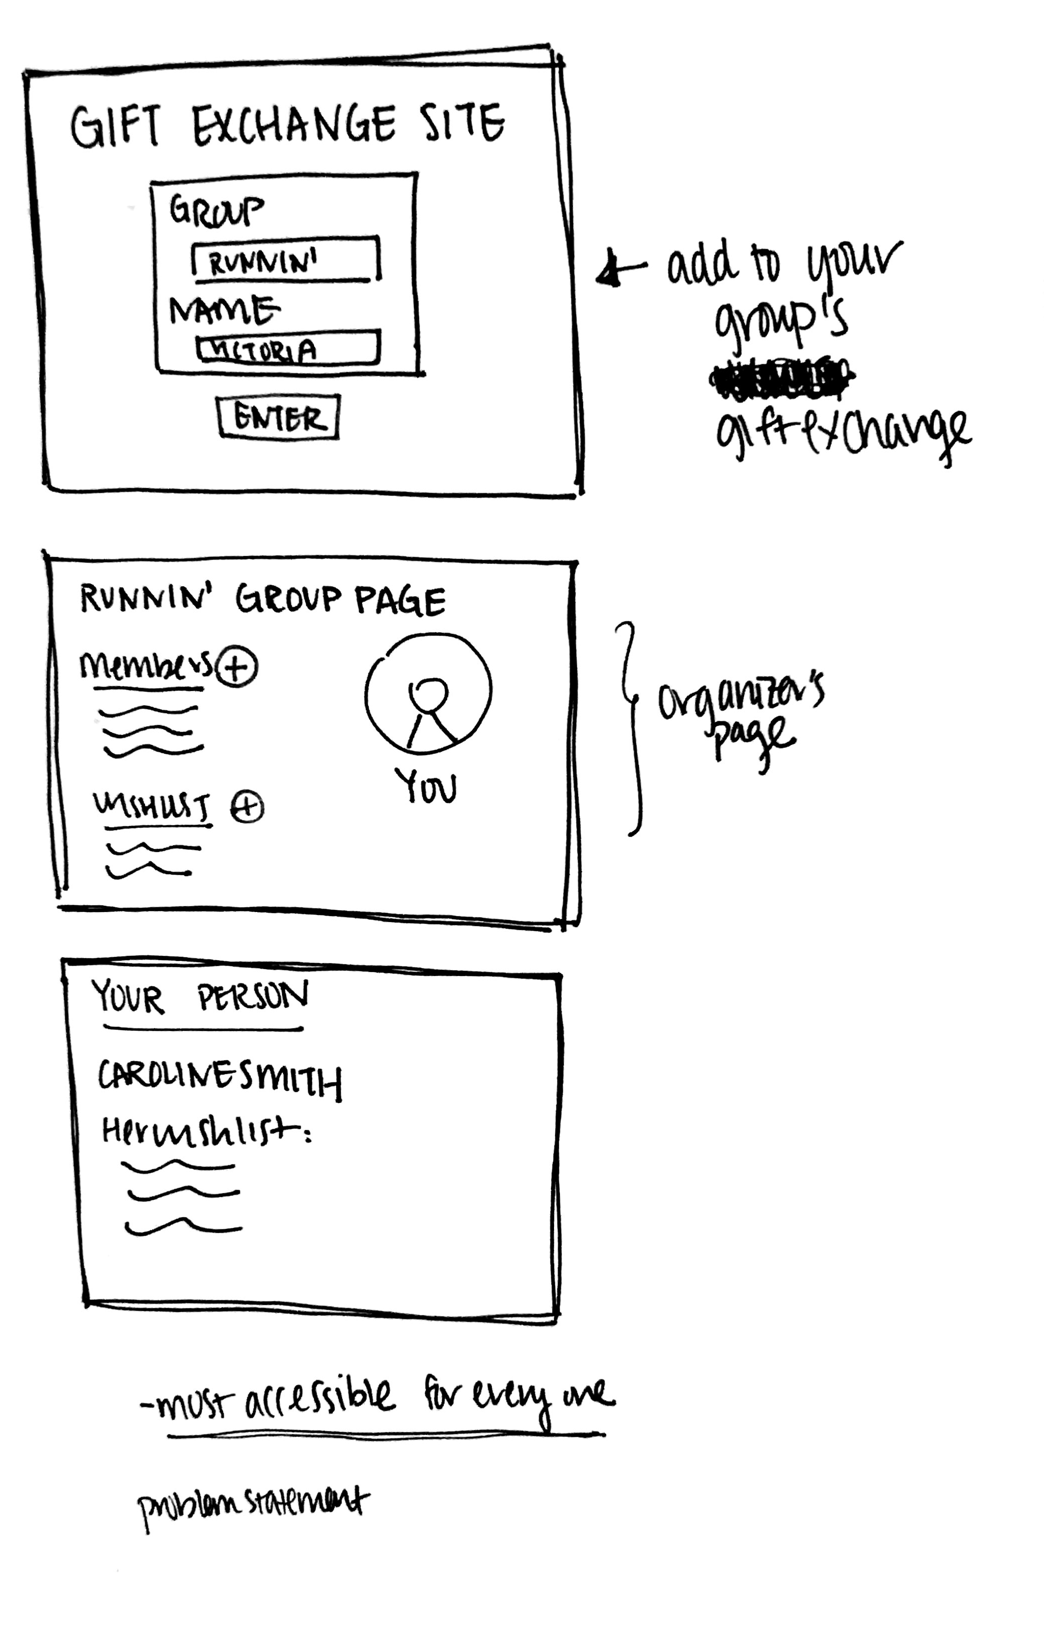 GIFT EXCHANGE SITE
GROUP
RUNNIN'
NAME
VICTORIA
ENTER
add to your
group's
giftexchange
RUNNIN' GROUP PAGE
Members +
WISHLIST +
YOU
organizer's
page
YOUR PERSON
CAROLINE SMITH
Her wishlist:
-must accessible for every one
problem statement